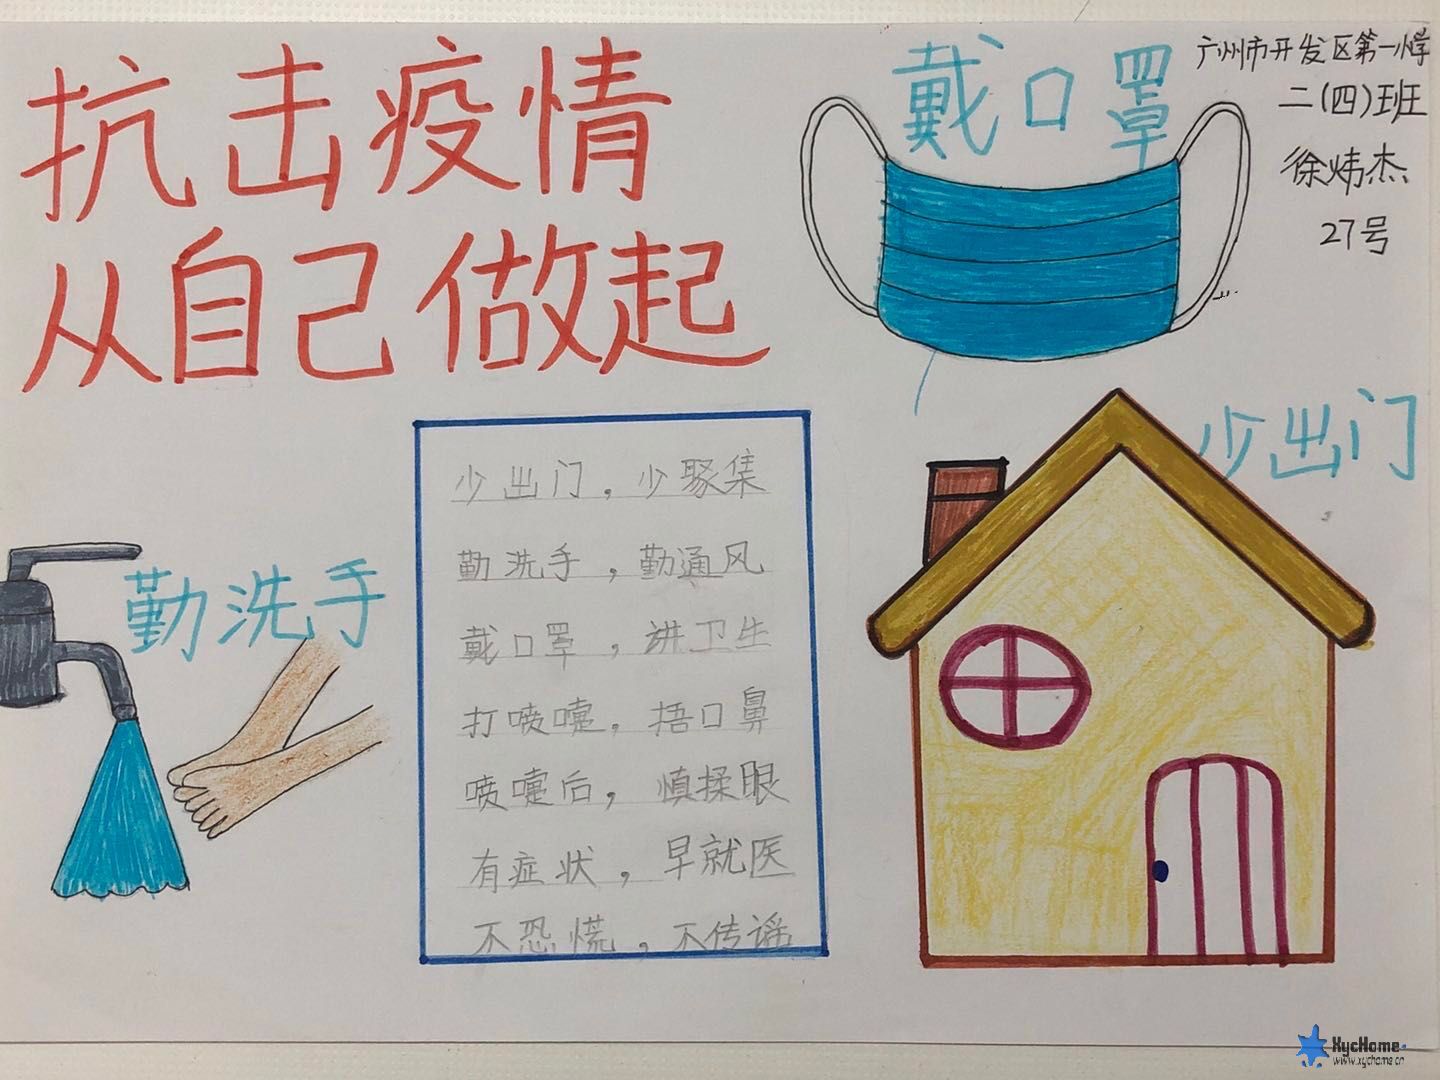 抗击疫情
从自己做起
戴口罩
广州市开发区第一小学
二(四)班
徐炜杰
27号
少出门
勤洗手
少出门，少聚集
勤洗手，勤通风
戴口罩，讲卫生
打喷嚏，捂口鼻
喷嚏后，慎揉眼
有症状，早就医
不恐慌，不传谣
XycHome
www.xychome.cn